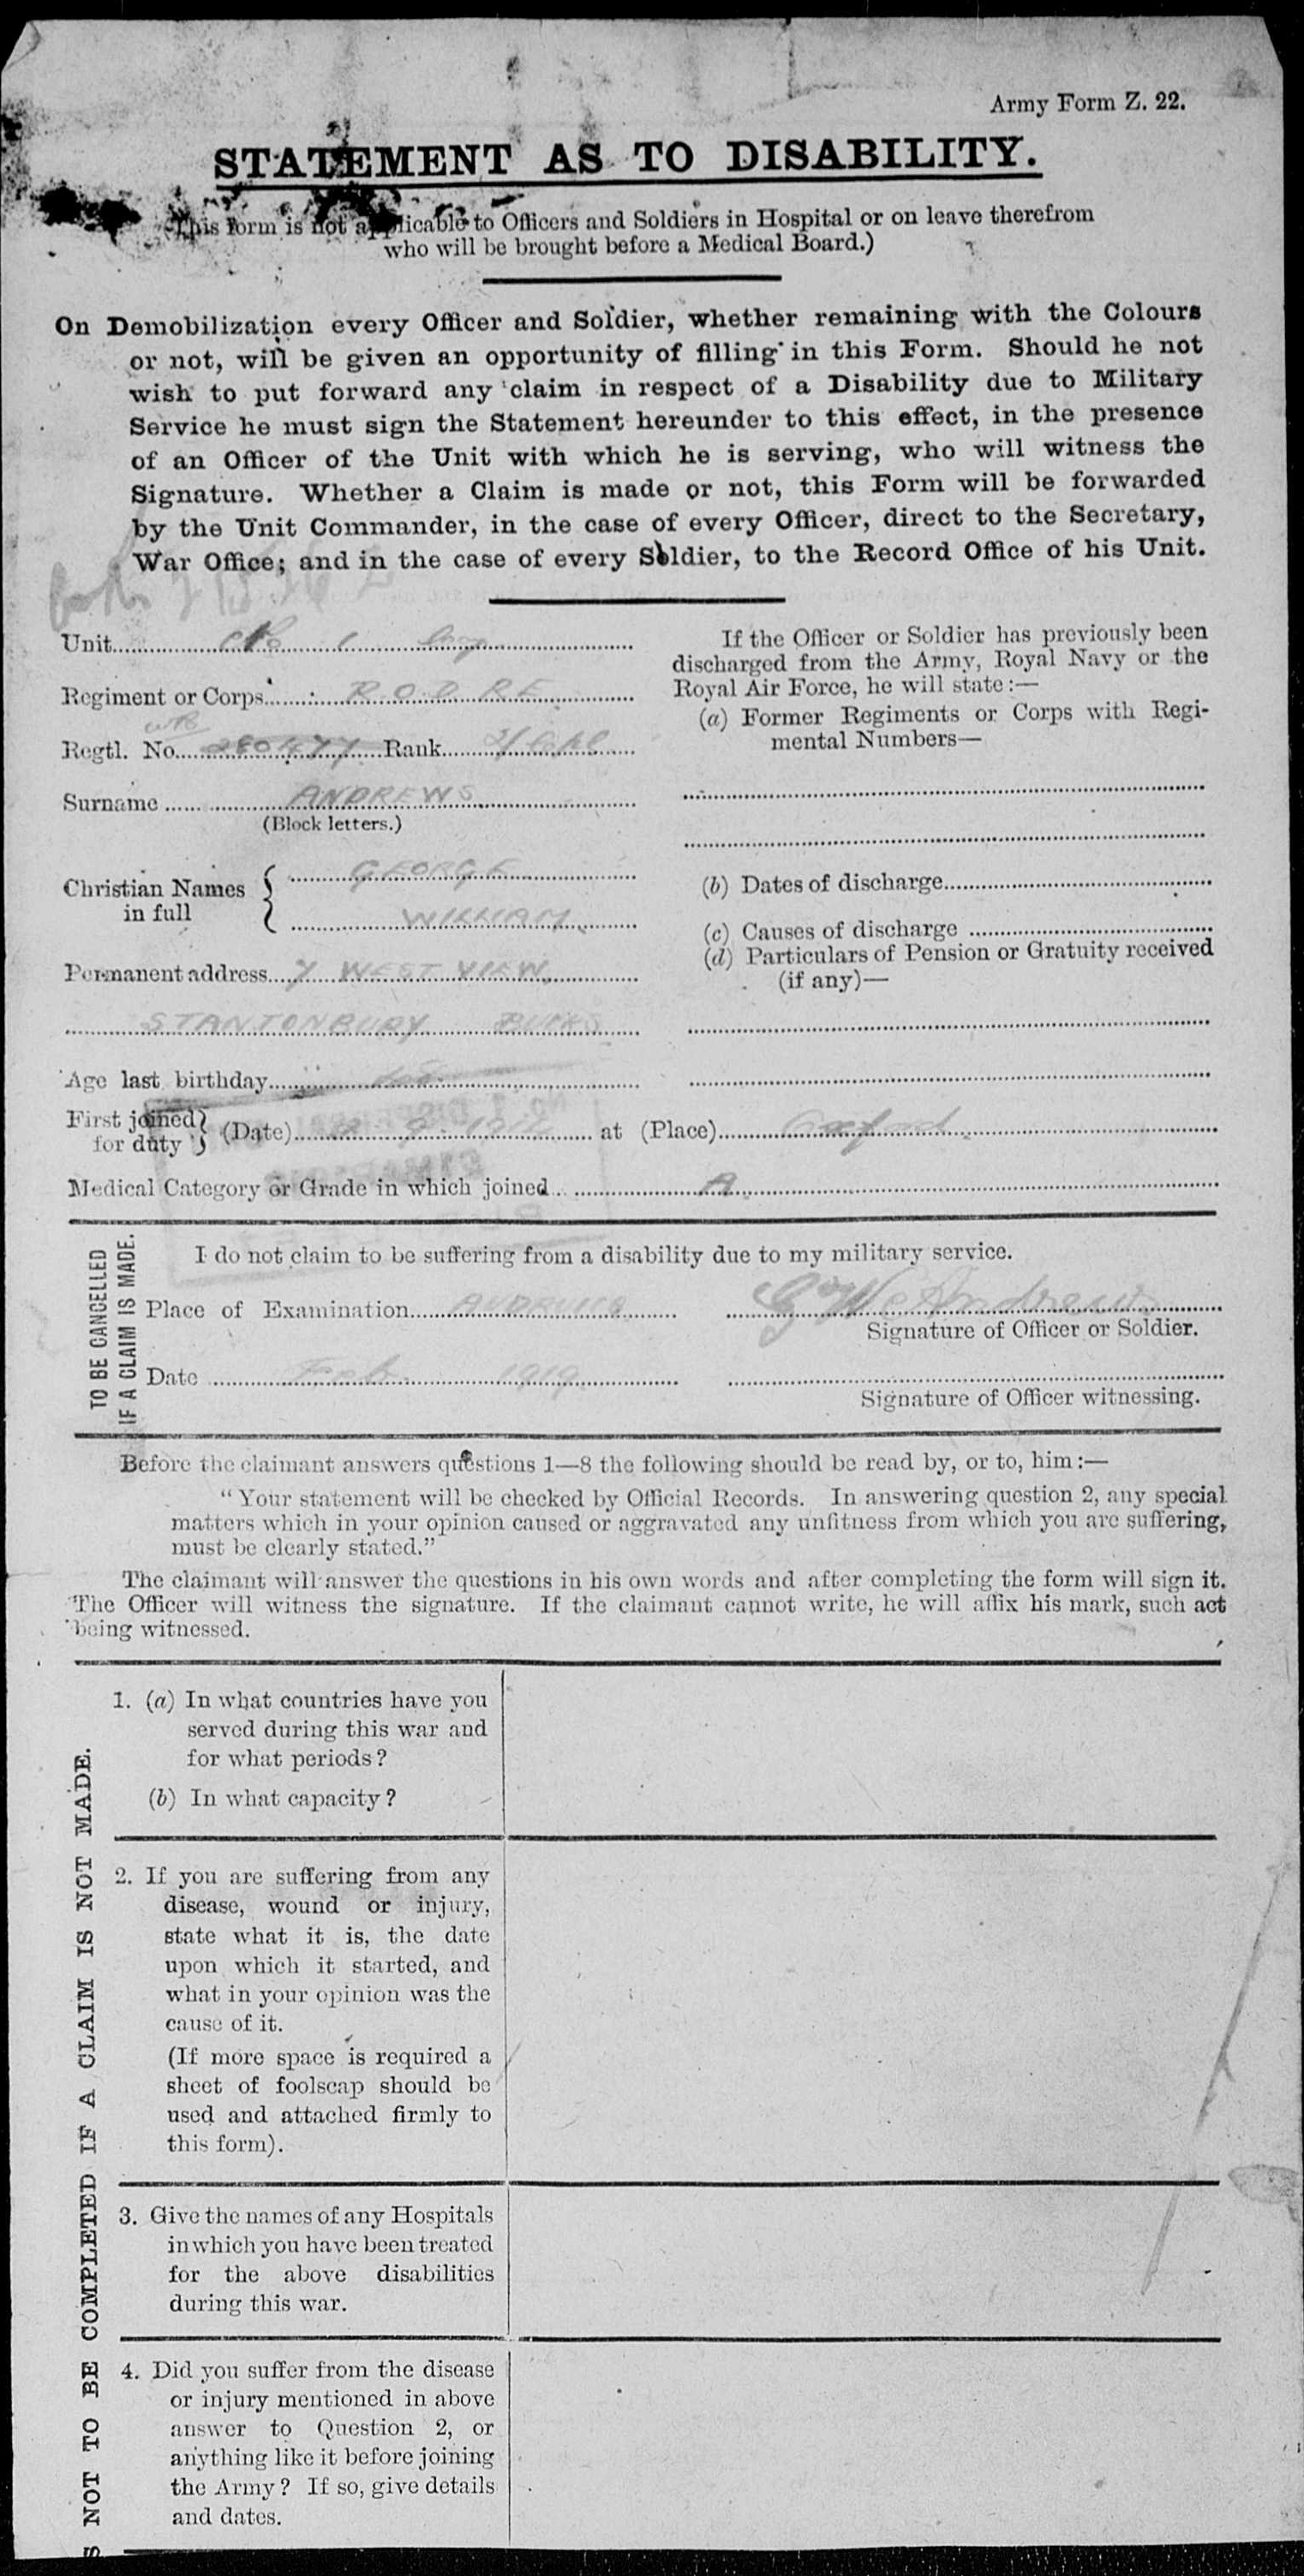 Army Form Z. 22.
STATEMENT AS TO DISABILITY.
(This form is not applicable to Officers and Soldiers in Hospital or on leave therefrom
who will be brought before a Medical Board.)
On Demobilization every Officer and Soldier, whether remaining with the Colours
or not, will be given an opportunity of filling in this Form. Should he not
wish to put forward any claim in respect of a Disability due to Military
Service he must sign the Statement hereunder to this effect, in the presence
of an Officer of the Unit with which he is serving, who will witness the
Signature. Whether a Claim is made or not, this Form will be forwarded
by the Unit Commander, in the case of every Officer, direct to the Secretary,
War Office; and in the case of every Soldier, to the Record Office of his Unit.
Unit
Regiment or Corps R.O.D. R.E.
Regtl. No. WR 280477 Rank
Surname ANDREWS
(Block letters.)
Christian Names in full GEORGE
WILLIAM
Permanent address 7 WEST VIEW
STANTONBURY BUCKS
Age last birthday
If the Officer or Soldier has previously been
discharged from the Army, Royal Navy or the
Royal Air Force, he will state:—
(a) Former Regiments or Corps with Regi-
mental Numbers—
(b) Dates of discharge
(c) Causes of discharge
(d) Particulars of Pension or Gratuity received
(if any)—
First joined for duty (Date) at (Place) Oxford
Medical Category or Grade in which joined A
TO BE CANCELLED
IF A CLAIM IS MADE.
I do not claim to be suffering from a disability due to my military service.
Place of Examination AUDRUICQ G W Andrews
Signature of Officer or Soldier.
Date Feb 1919
Signature of Officer witnessing.
Before the claimant answers questions 1—8 the following should be read by, or to, him:—
"Your statement will be checked by Official Records. In answering question 2, any special
matters which in your opinion caused or aggravated any unfitness from which you are suffering,
must be clearly stated."
The claimant will answer the questions in his own words and after completing the form will sign it.
The Officer will witness the signature. If the claimant cannot write, he will affix his mark, such act
being witnessed.
NOT TO BE COMPLETED IF A CLAIM IS NOT MADE.
1. (a) In what countries have you
served during this war and
for what periods?
(b) In what capacity?
2. If you are suffering from any
disease, wound or injury,
state what it is, the date
upon which it started, and
what in your opinion was the
cause of it.
(If more space is required a
sheet of foolscap should be
used and attached firmly to
this form).
3. Give the names of any Hospitals
in which you have been treated
for the above disabilities
during this war.
4. Did you suffer from the disease
or injury mentioned in above
answer to Question 2, or
anything like it before joining
the Army? If so, give details
and dates.